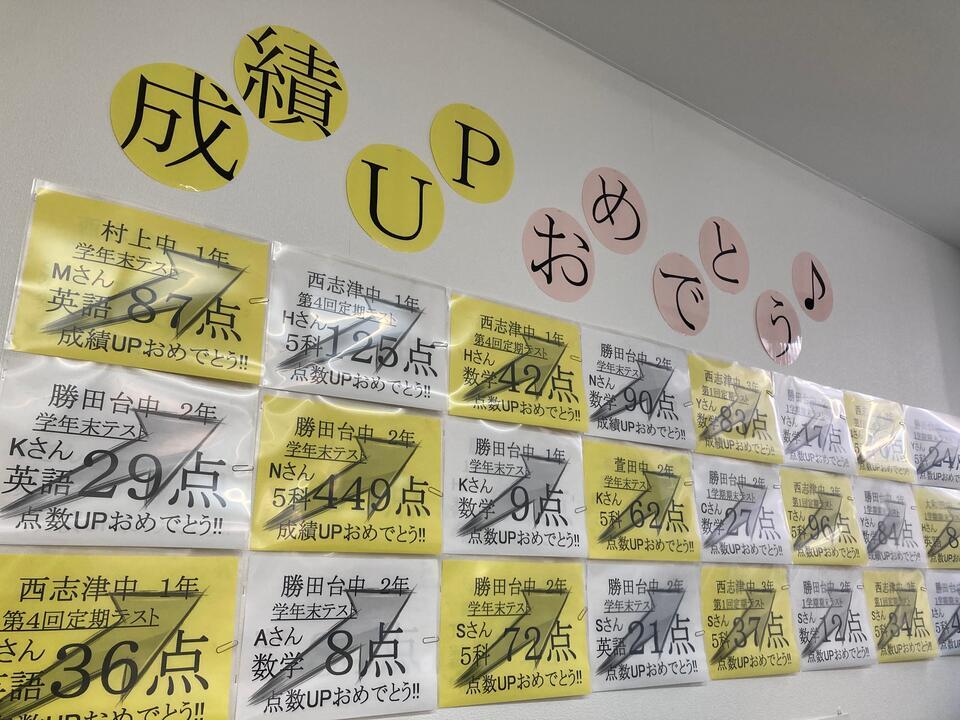 成績UPおめでとう♪
村上中 1年
学年末テスト
Mさん
英語 87点
成績UPおめでとう!!
西志津中 1年
第4回定期テスト
Hさん
5科 125点
点数UPおめでとう!!
西志津中 1年
第4回定期テスト
Hさん
数学 42点
点数UPおめでとう!!
勝田台中 2年
学年末テスト
Nさん
数学 90点
成績UPおめでとう!!
西志津中 3年
第1回定期テスト
Yさん
数学 83点
成績UPおめでとう!!
勝田台中 2年
1学期期末テスト
Yさん
数学 17点
点数UPおめでとう!!
24
勝田台中 2年
学年末テスト
Kさん
英語 29点
点数UPおめでとう!!
勝田台中 2年
学年末テスト
Nさん
5科 449点
成績UPおめでとう!!
勝田台中 1年
学年末テスト
Kさん
数学 9点
点数UPおめでとう!!
萱田中 2年
学年末テスト
Kさん
5科 62点
点数UPおめでとう!!
勝田台中 2年
1学期期末テスト
数学 27点
点数UPおめでとう!!
西志津中 3年
Tさん
5科 96点
点数UPおめでとう!!
勝田台中 2年
1学期期末テスト
Yさん
84点
西志津中 1年
第4回定期テスト
さん
英語 36点
点数UPおめでとう!!
勝田台中 2年
学年末テスト
Aさん
数学 8点
点数UPおめでとう!!
勝田台中 2年
学年末テスト
Sさん
5科 72点
点数UPおめでとう!!
勝田台中 2年
学年末テスト
Sさん
英語 21点
点数UPおめでとう!!
西志津中 3年
第1回定期テスト
Sさん
5科 37点
点数UPおめでとう!!
勝田台中 2年
1学期期末テスト
Sさん
数学 12点
点数UPおめでとう!!
西志津中 3年
第1回定期テスト
Sさん
5科 34点
点数UPおめでとう!!